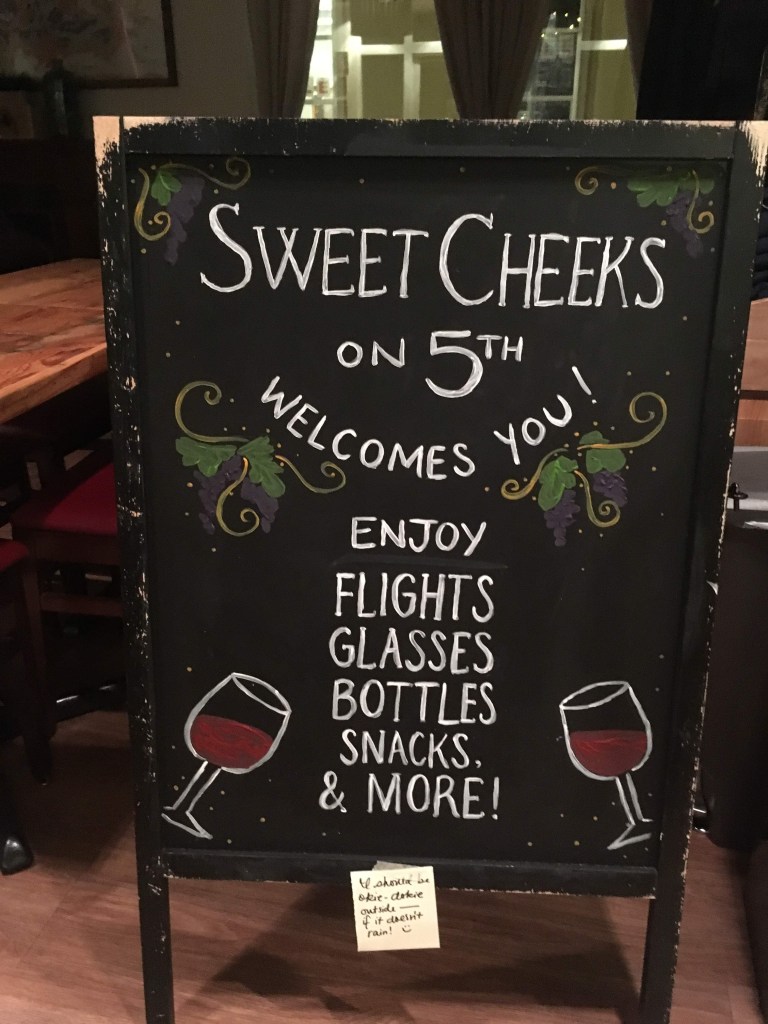 SWEET CHEEKS
ON 5TH
WELCOMES YOU!
ENJOY
FLIGHTS
GLASSES
BOTTLES
SNACKS,
& MORE!
should be
okie-dokie
outside —
if it doesn't
rain! ☺